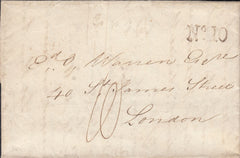 No. 10
Ed. J. Warren Esqre
40 St. James Street
London
10